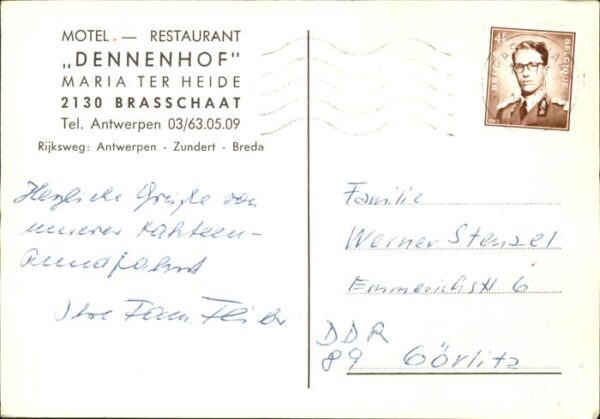 MOTEL — RESTAURANT
„DENNENHOF"
MARIA TER HEIDE
2130 BRASSCHAAT
Tel. Antwerpen 03/63.05.09
Rijksweg: Antwerpen - Zundert - Breda
Herzliche Grüße von
unserer
Rundfahrt
Ihre Fam.
4F
BELGIQUE
Familie
Werner Stenzel
Emmerichstr 6
DDR
89 Görlitz